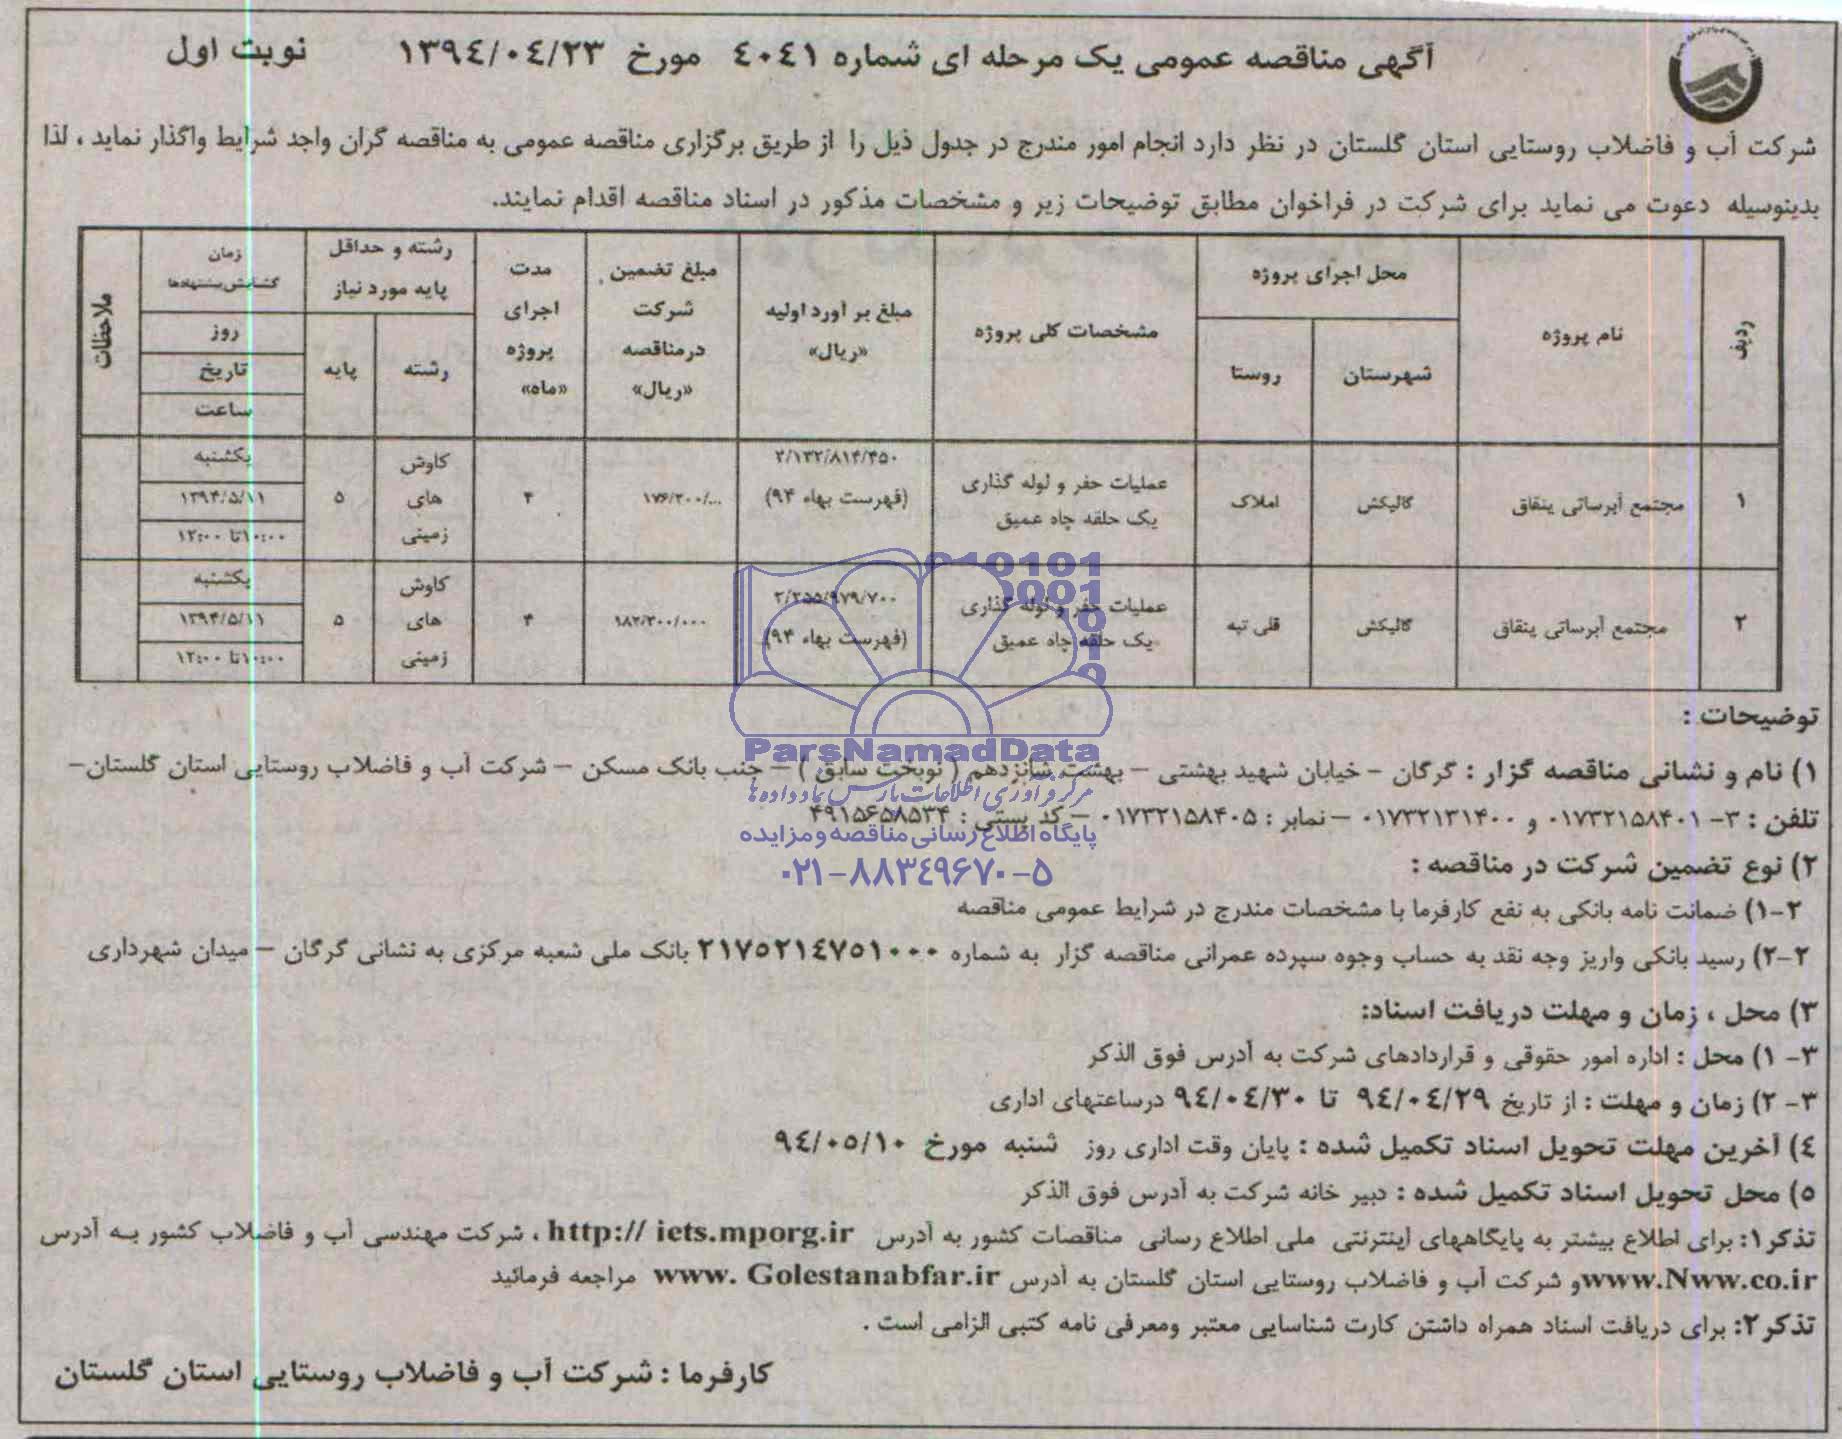 آگهی مناقصه عمومی یک مرحله ای شماره ٤٠٤١ مورخ ١٣٩٤/٠٤/٢٣ نوبت اول
شرکت آب و فاضلاب روستایی استان گلستان در نظر دارد انجام امور مندرج در جدول ذیل را از طریق برگزاری مناقصه عمومی به مناقصه گران واجد شرایط واگذار نماید ، لذا
بدینوسیله دعوت می نماید برای شرکت در فراخوان مطابق توضیحات زیر و مشخصات مذکور در اسناد مناقصه اقدام نمایند.
ردیف
نام پروژه
محل اجرای پروژه
شهرستان
روستا
مشخصات کلی پروژه
مبلغ بر آورد اولیه
«ریال»
مبلغ تضمین
شرکت
درمناقصه
«ریال»
مدت
اجرای
پروژه
«ماه»
رشته و حداقل
پایه مورد نیاز
رشته
پایه
زمان
گشایش پیشنهادها
روز
تاریخ
ساعت
ملاحظات
۱
مجتمع آبرسانی ینقاق
گالیکش
املاک
عملیات حفر و لوله گذاری
یک حلقه چاه عمیق
۲/۱۳۲/۸۱۴/۴۵۰
(فهرست بهاء ۹۴)
۱۷۶/۳۰۰/...
۴
کاوش
های
زمینی
۵
یکشنبه
۱۳۹۴/۵/۱۱
۱۰:۰۰ تا ۱۲:۰۰
۲
مجتمع آبرسانی ینقاق
گالیکش
قلی تپه
عملیات حفر و لوله گذاری
یک حلقه چاه عمیق
۲/۲۵۵/۹۷۹/۷۰۰
(فهرست بهاء ۹۴)
۱۸۲/۳۰۰/۰۰۰
۴
کاوش
های
زمینی
۵
یکشنبه
۱۳۹۴/۵/۱۱
۱۰:۰۰ تا ۱۲:۰۰
توضیحات :
۱) نام و نشانی مناقصه گزار : گرگان - خیابان شهید بهشتی – بهشت شانزدهم ( نوبخت سابق ) – جنب بانک مسکن – شرکت آب و فاضلاب روستایی استان گلستان–
تلفن : ۳- ۰۱۷۳۲۱۵۸۴۰۱ و ۰۱۷۳۲۱۳۱۴۰۰ – نمابر : ۰۱۷۳۲۱۵۸۴۰۵ – کد پستی : ۴۹۱۵۶۵۸۵۳۴
۲) نوع تضمین شرکت در مناقصه :
۲-۱) ضمانت نامه بانکی به نفع کارفرما با مشخصات مندرج در شرایط عمومی مناقصه
۲-۲) رسید بانکی واریز وجه نقد به حساب وجوه سپرده عمرانی مناقصه گزار به شماره ٢١٧٥٢١٤٧٥١٠٠٠ بانک ملی شعبه مرکزی به نشانی گرگان – میدان شهرداری
۳) محل ، زمان و مهلت دریافت اسناد:
۳- ۱) محل : اداره امور حقوقی و قراردادهای شرکت به آدرس فوق الذکر
۳- ۲) زمان و مهلت : از تاریخ ٩٤/٠٤/٢٩ تا ٩٤/٠٤/٣٠ درساعتهای اداری
٤) آخرین مهلت تحویل اسناد تکمیل شده : پایان وقت اداری روز شنبه مورخ ٩٤/٠٥/١٠
٥) محل تحویل اسناد تکمیل شده : دبیر خانه شرکت به آدرس فوق الذکر
تذکر۱: برای اطلاع بیشتر به پایگاههای اینترنتی ملی اطلاع رسانی مناقصات کشور به آدرس http:// iets.mporg.ir ، شرکت مهندسی آب و فاضلاب کشور به آدرس
www.Nww.co.ir و شرکت آب و فاضلاب روستایی استان گلستان به آدرس www. Golestanabfar.ir مراجعه فرمائید
تذکر۲: برای دریافت اسناد همراه داشتن کارت شناسایی معتبر ومعرفی نامه کتبی الزامی است .
کارفرما : شرکت آب و فاضلاب روستایی استان گلستان
ParsNamadData
مرکز فرآوری اطلاعات پارس نماد داده ها
پایگاه اطلاع رسانی مناقصه و مزایده
۰۲۱-۸۸۳٤۹۶۷۰-۵